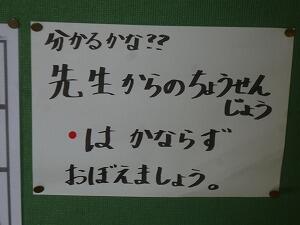 分かるかな??
先生からのちょうせん
じょう
•は かならず
おぼえましょう。